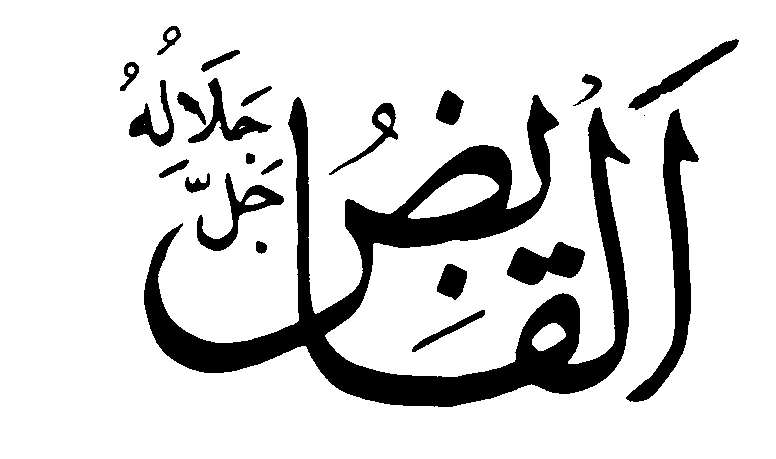 اَلْقَابِضُ
جَلَّ جَلَالُهُ